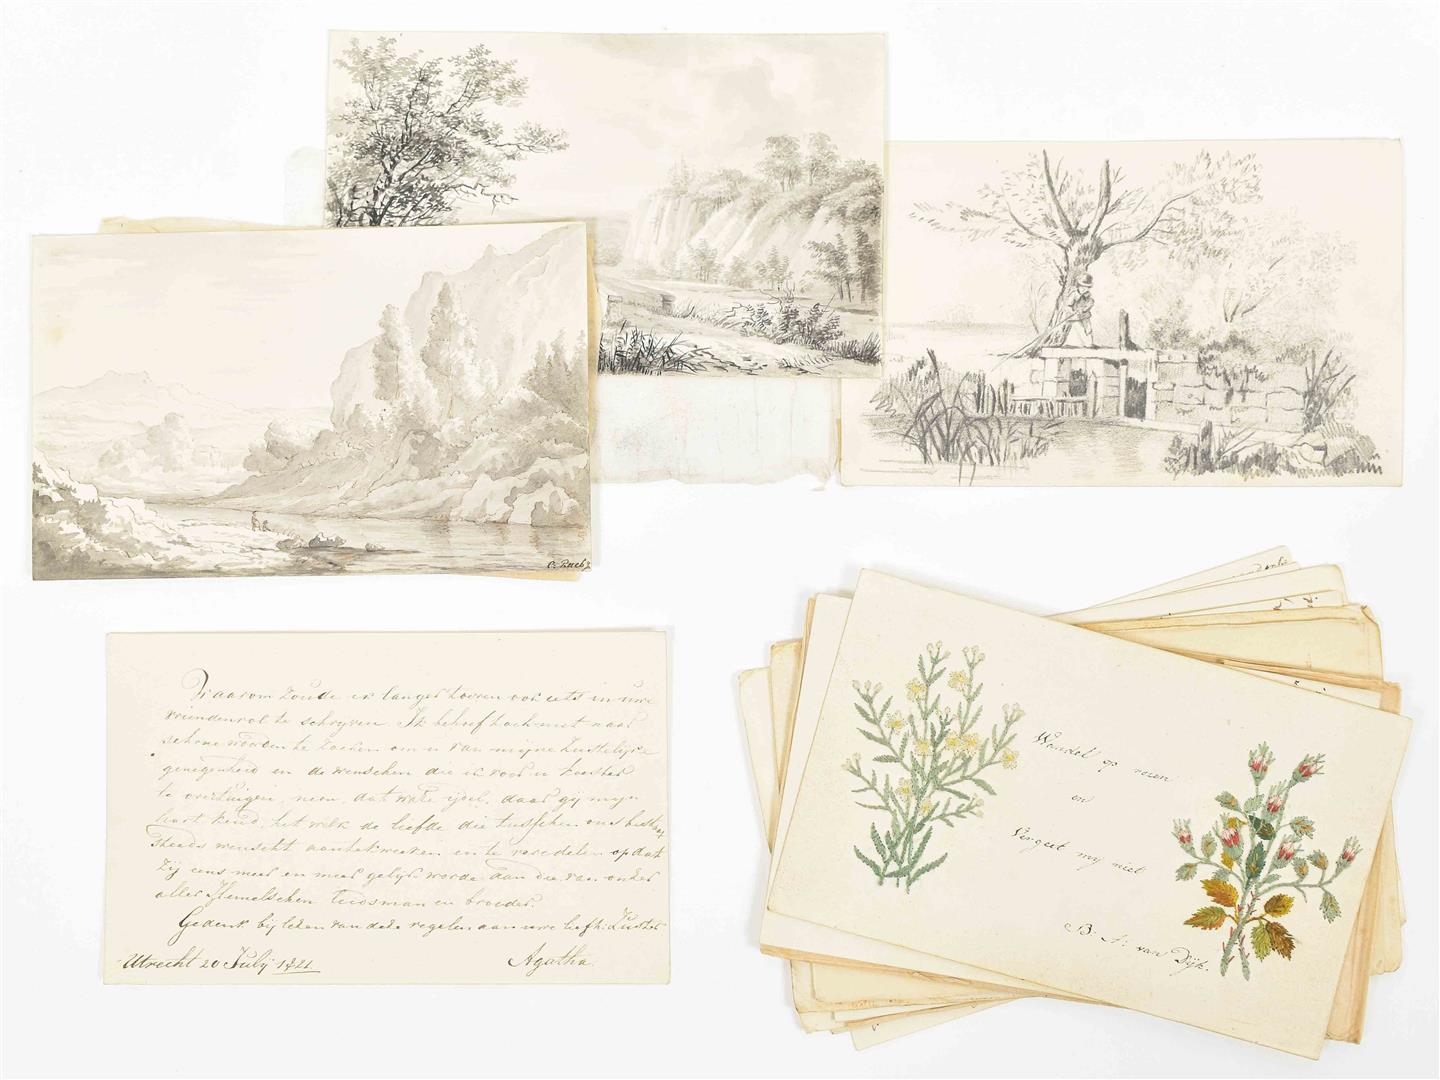 C. Buck f.
Waarom zoude ik langer toeven ook iets in uwe
vriendenrol te schryven. Ik behoef toch niet naar
schone woorden te zoeken om u van myne zusterlyke
genegenheid en de wenschen die ik voor u koester
te overtuigen, neen, dat ware ydel, daar gy myn
hart kend, het welk de liefde die tusschen ons bestaat
steeds wenscht aantekweeken en te veredelen op dat
zy ons meer en meer gelyk worde aan die van onzer
aller Hemelschen Leidsman en broeder.
Gedenk by lezen van deze regelen aan uwe liefh: Zuster
Utrecht 20 July 1821 Agatha
Wandel op rozen
en
Vergeet my niet
B. A: van Dyk.